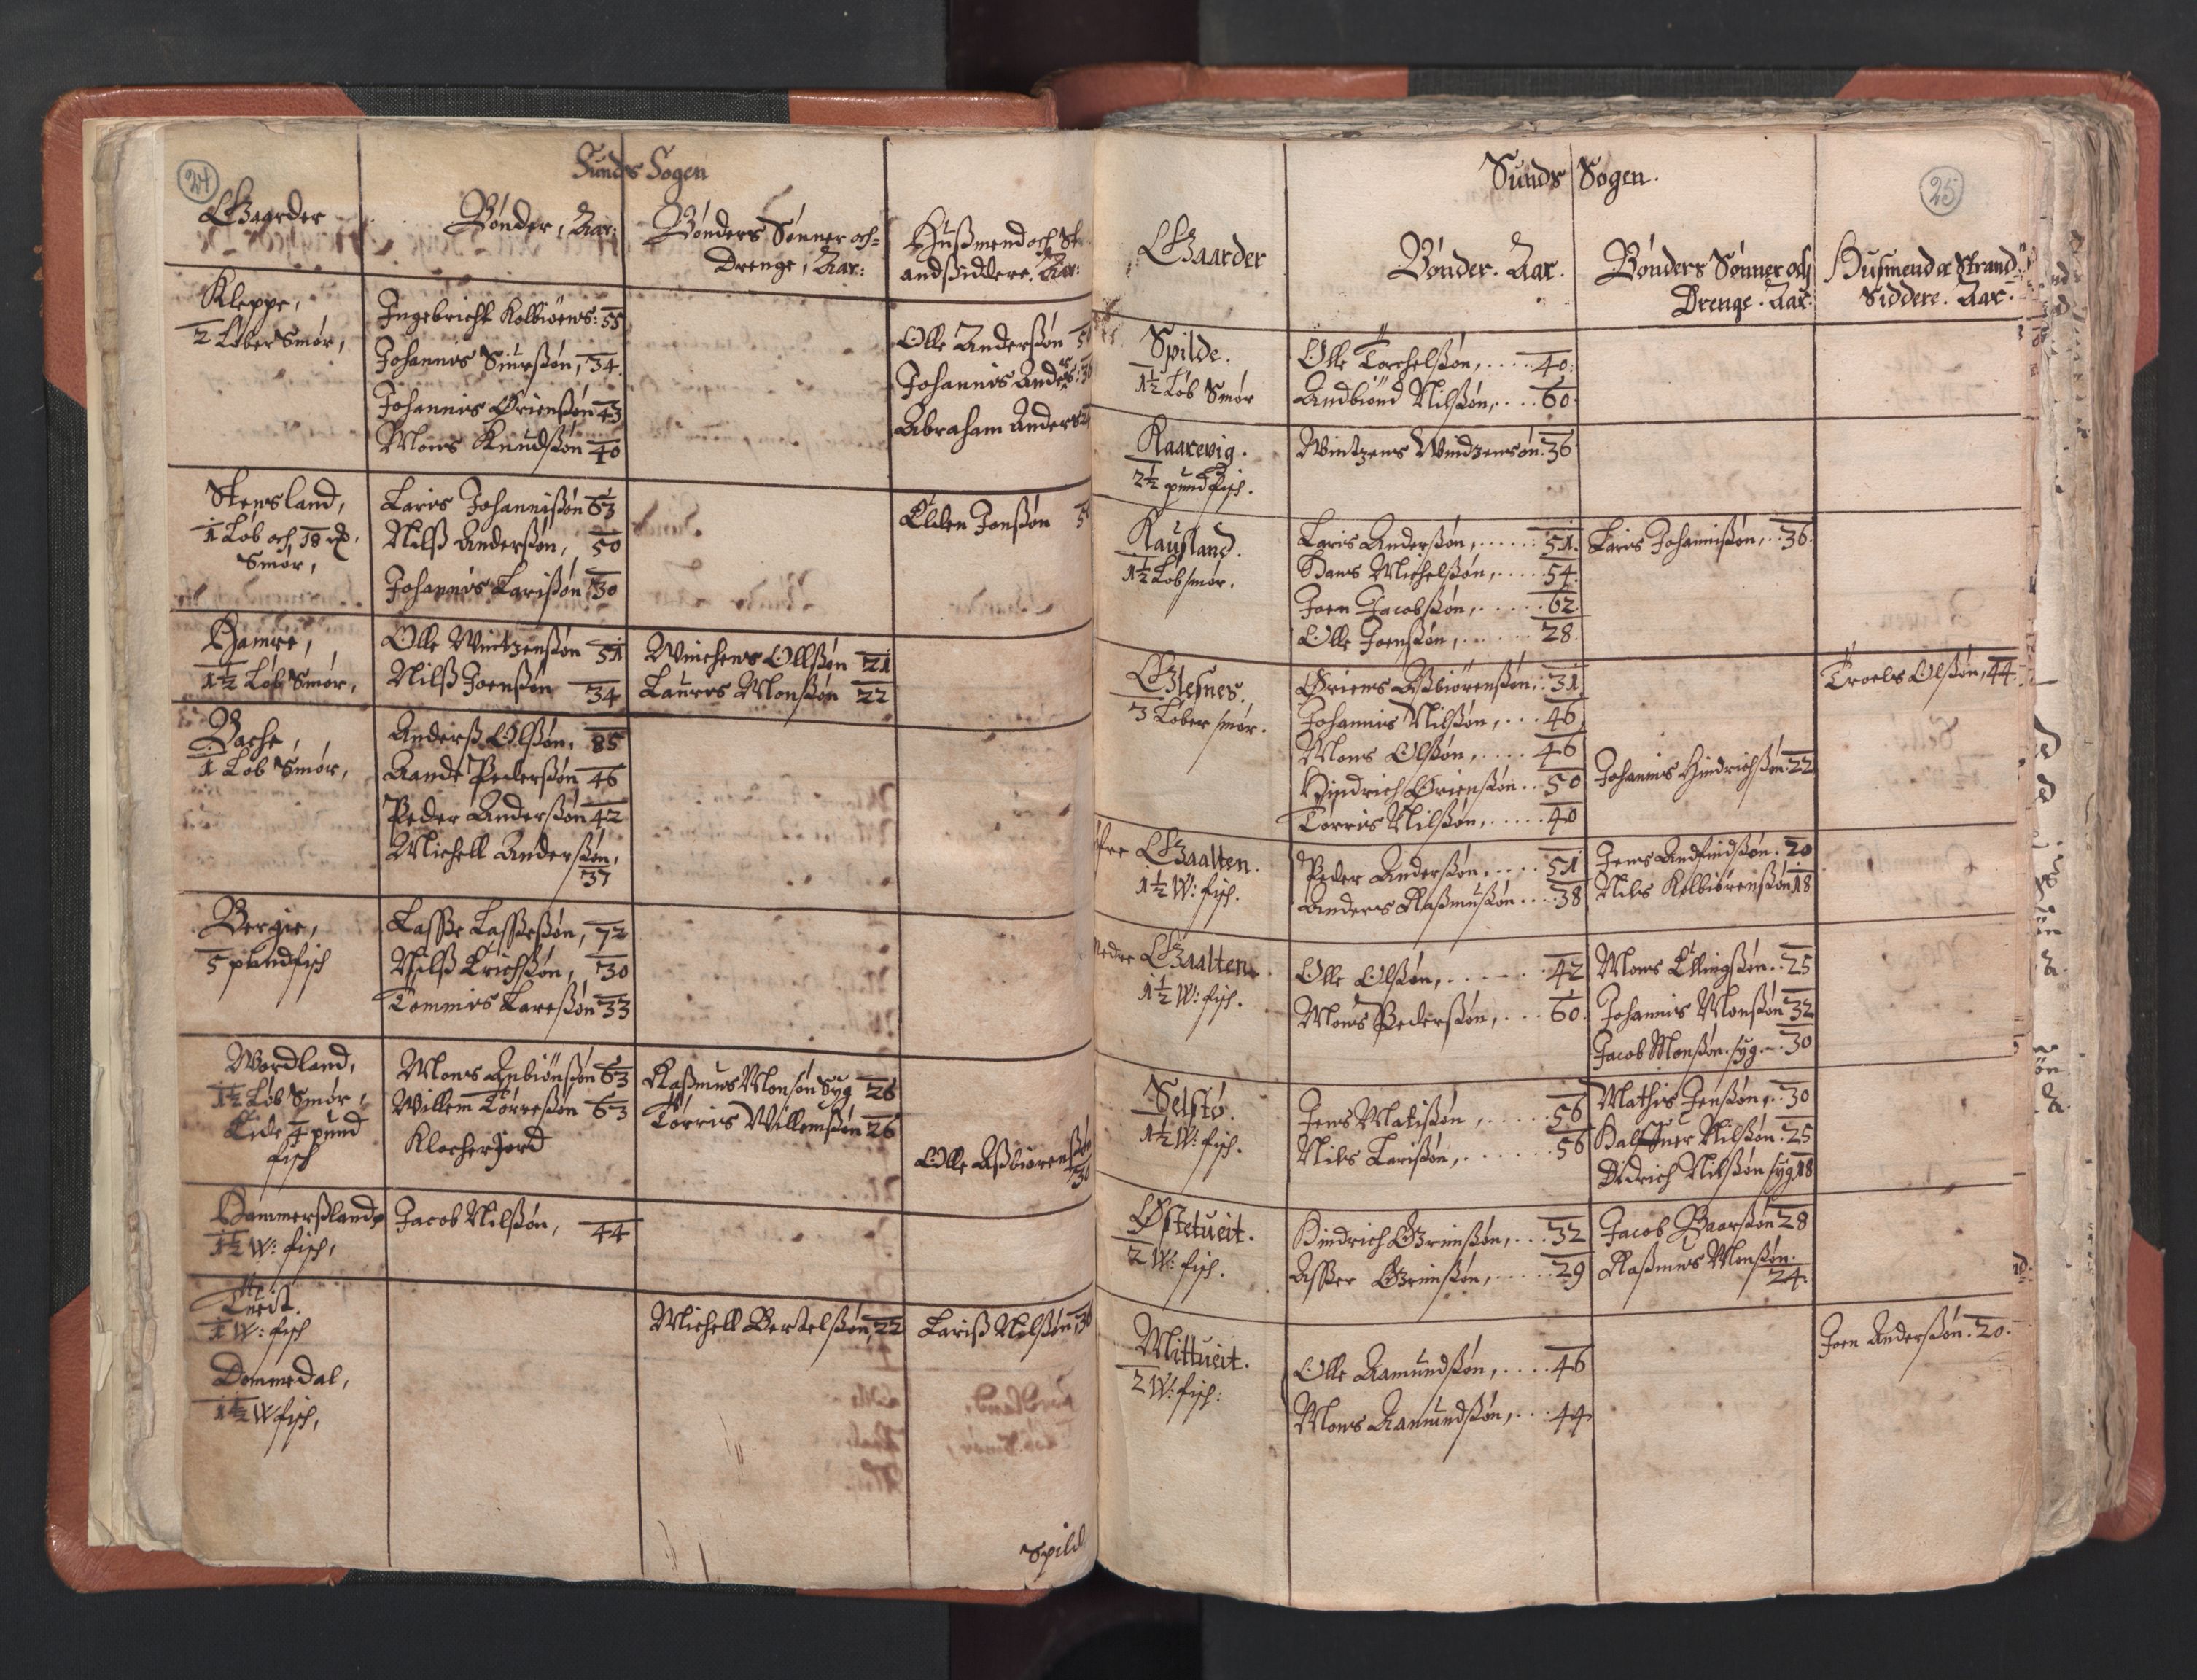 24
Sunds Sogen
Gaarder
Bønder, Aar:
Bønders Sønner och=
Drenge, Aar:
Hußmend och St
andßiddere. Aar:
Kleppe,
2 Løber Smør,
Ingebricht Kolbiøens: 55
Johannis Siurßøn, 34.
Johannis Ørienßøn 43
Mons Knudßøn 40
Olle Anderßøn 50
Johannis Anders: 30
Abraham Anders
Stensland,
1 Løb och 18
Smør,
Laris Johannißøn 63
Nilß Anderßøn, 50
Johannis Larißøn 30
Elden Jonßøn
Hamre,
1½ Løb Smør,
Olle Wintzenßøn 51
Nilß Joenßøn 34
Winchens Ollßøn 21
Laurs Monßøn 22
Bache,
1 Løb Smør,
Anderß Olßøn, 85
Aande Pederßøn 46
Peder Anderßøn 42
Michell Anderßøn,
37
Bergie,
5 pundfisch
Laßße Laßßeßøn, 72
Nilß Erichßøn, 30
Tommis Lareßøn 33
Wordland,
1½ Løb Smør,
Eide 4 pund
fisch
Mons Anbiønßøn 63
Willem Tørreßøn 63
Klocherjord
Raßmus Monsøn Syg 26
Tørris Willemßøn 26
Olle Aßbiørenßøn
30
Hammerßland
1½ W: fisch,
Jacob Nilßøn, 44
Tueit.
1 W: fisch
Michell Bertelßøn, 22
Lariß Nilßøn, 30
Dommedal,
1½ W fisch,
Spild
25
Sunds Sogen.
Gaarder
Bønder. Aar.
Bønders Sønner och
Drenge. Aar.
Husmend oc Strand
Siddere. Aar.
Spilde.
1½ Løb Smør
Olle Torchelßøn, .... 40.
Andbiønd Nilßøn, ... 60.
Kaarevig.
2½ pund fisch.
Wintzens Windzensøn. 36
Kausland.
1½ Løb smør.
Laris Anderßøn, ..... 51.
Hans Michelßøn, .... 54.
Joen Jacobßøn, ..... 62.
Olle Joenßøn, ..... 28.
Laris Johannißøn, .. 36.
Glesnes.
3 Løber smør.
Øriens Aßbiørenßøn. 31
Johannis Nilßøn, ... 46
Mons Olßøn, .... 46
Hindrich Ørienßøn .. 50
Tørris Nilßøn, ..... 40
Johannis Hindrichßøn. 22
Troels Olßøn, 44.
øfre Gaalten.
1½ W: fisch.
Peder Anderßøn, .... 51
Anders Raßmußøn ... 38
Jens Andfindßøn. 20
Nils Kolbiørenßøn 18
nedre Gaalten.
1½ W: fisch.
Olle Olßøn, ..... 42
Mons Pederßøn, ... 60.
Mons Ellingßøn .. 25
Johannis Monßøn 32
Jacob Monßøn. syg. .. 30
Selstø.
1½ W: fisch.
Jens Matißøn, ..... 56
Nils Larißøn, ...... 56
Mathis Jenßøn, .. 30
Nilßøn. 25
Didrich Nilßøn syg 18
Østetueit.
2 W: fisch.
Hindrich Grimßøn, ... 32
Aßßer Grimßøn, ..... 29
Jacob Baarßøn 28
Raßmus Monßøn.
24.
Mittueit.
2 W: fisch:
Olle Aamundßøn, .... 46
Mons Aamundßøn, ... 44
Joen Anderßøn. 20.